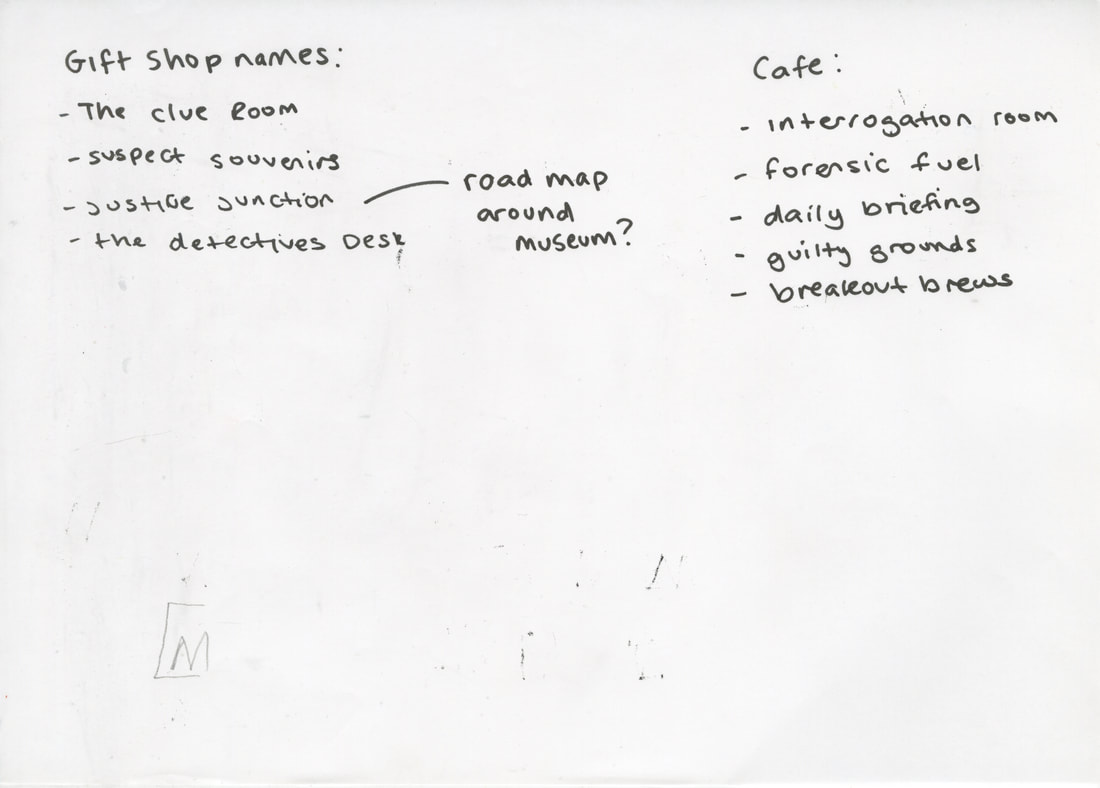 Gift Shop names:
- The clue Room
- suspect souvenirs
- Justice Junction
- the detectives Desk
road map
around
museum?
Cafe:
- interrogation room
- forensic fuel
- daily briefing
- guilty grounds
- breakout brews
M